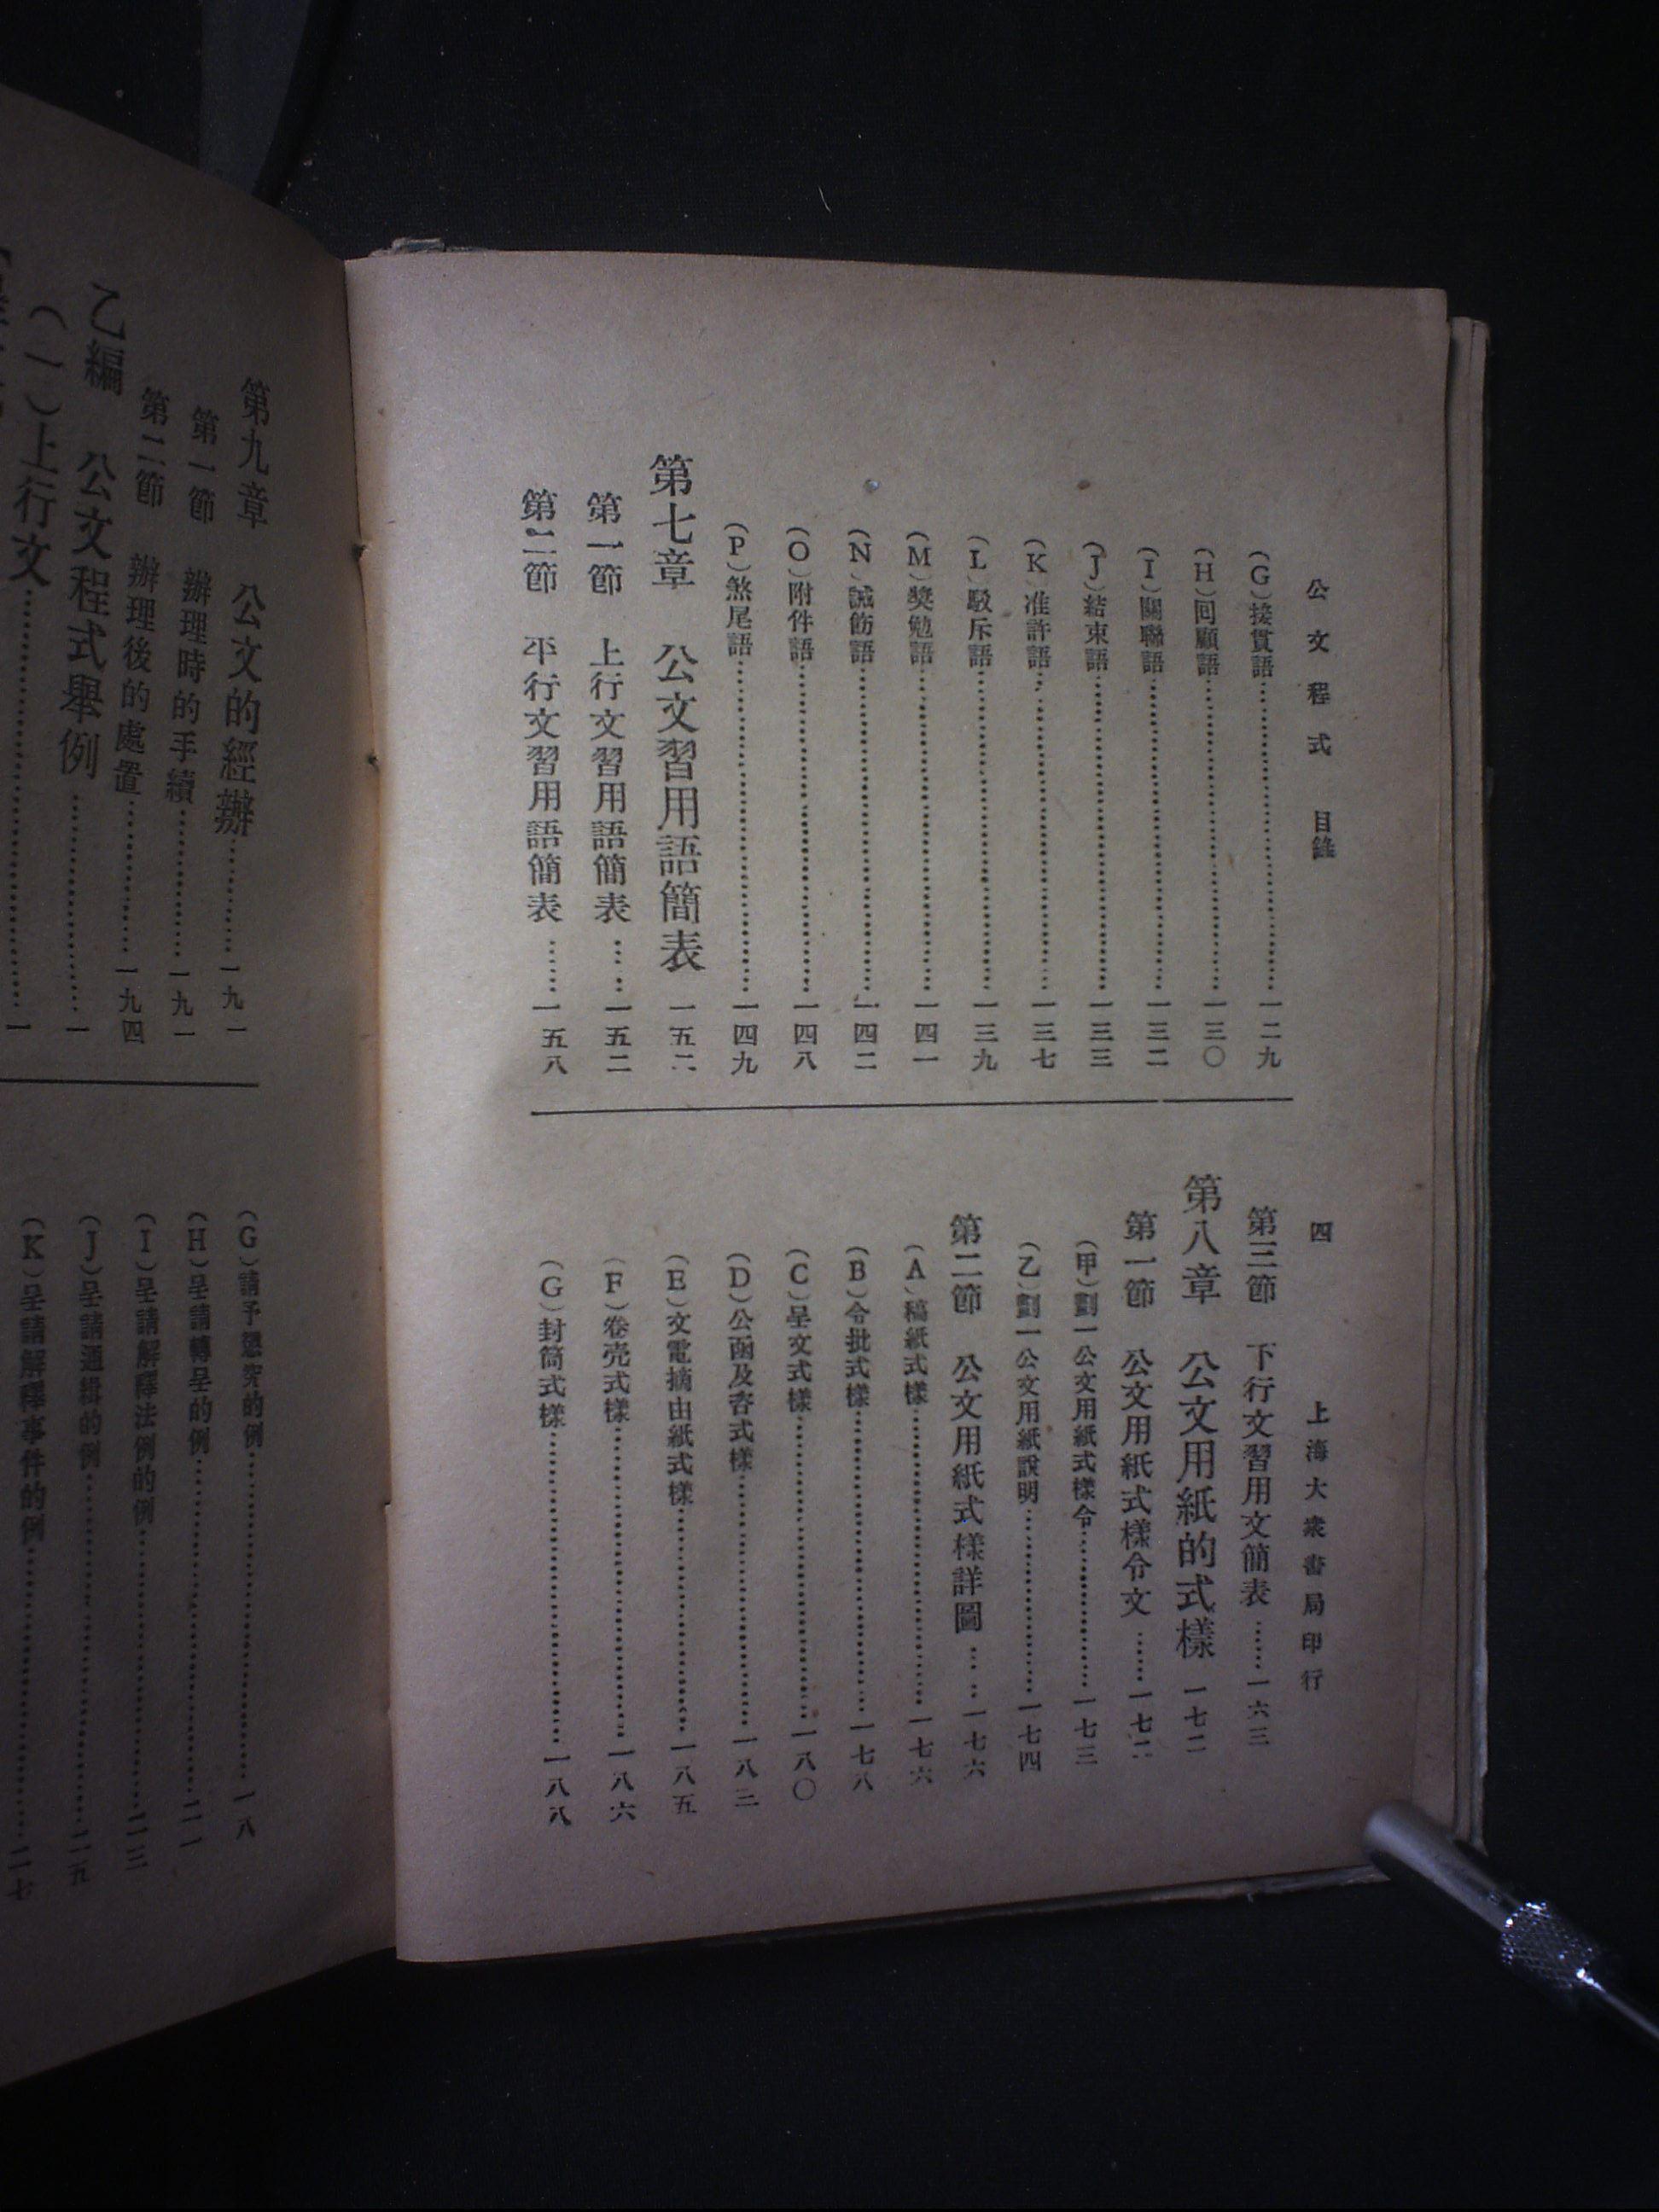 公文程式　目錄
四　上海大衆書局印行
（G）接貫語……一二九
（H）回顧語……一三〇
（I）關聯語……一三二
（J）結束語……一三三
（K）准許語……一三七
（L）駁斥語……一三九
（M）獎勉語……一四一
（N）誡飭語……一四二
（O）附件語……一四八
（P）煞尾語……一四九
第七章　公文習用語簡表　一五二
第一節　上行文習用語簡表……一五二
第二節　平行文習用語簡表……一五八
第三節　下行文習用文簡表……一六三
第八章　公文用紙的式樣　一七二
第一節　公文用紙式樣令文……一七二
（甲）劃一公文用紙式樣令……一七三
（乙）劃一公文用紙說明……一七四
第二節　公文用紙式樣詳圖……一七六
（A）稿紙式樣……一七六
（B）令批式樣……一七八
（C）呈文式樣……一八〇
（D）公函及咨式樣……一八三
（E）文電摘由紙式樣……一八五
（F）卷壳式樣……一八六
（G）封筒式樣……一八八
第九章　公文的經辦……一九一
第一節　辦理時的手續……一九一
第二節　辦理後的處置……一九四
乙編　公文程式舉例……一
（一）上行文……一
（G）請予懲究的例……一八
（H）呈請轉呈的例……二一
（I）呈請解釋法例的例……二三
（J）呈請通緝的例……二五
（K）呈請解釋事件的例……二七